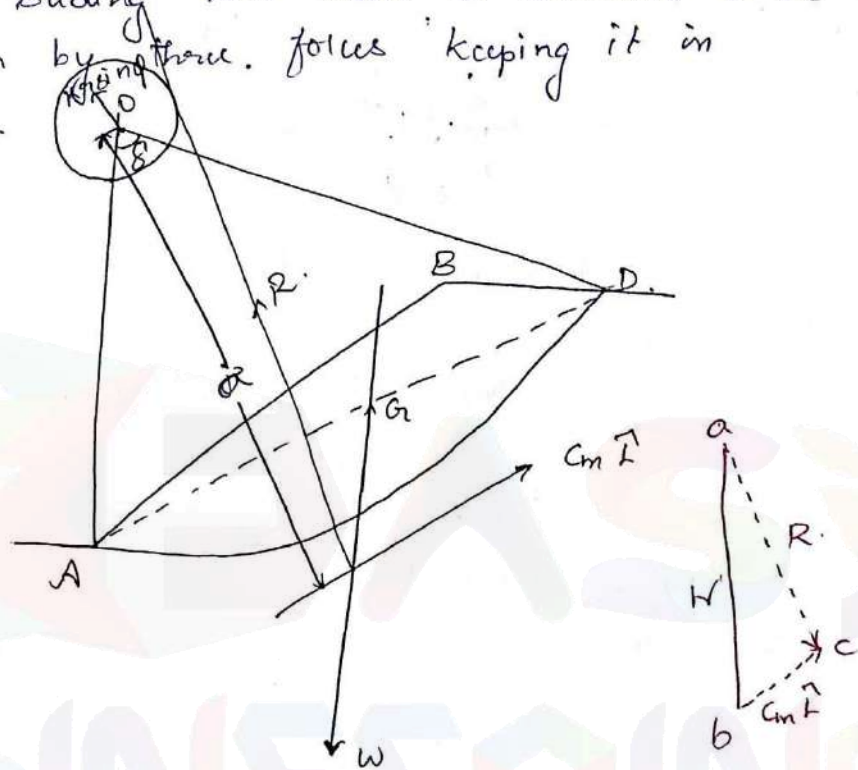 by three. forces keeping it in
O
δ
R.
B
D.
a
G
Cm L̂
A
R.
W
c
W
b
Cm L̂